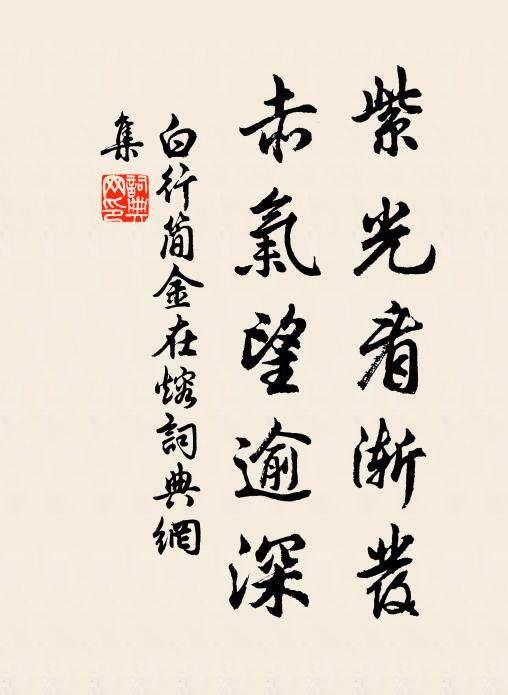 紫光看漸發
赤氣望逾深
白行簡金在熔詞典網
集
詞典網印